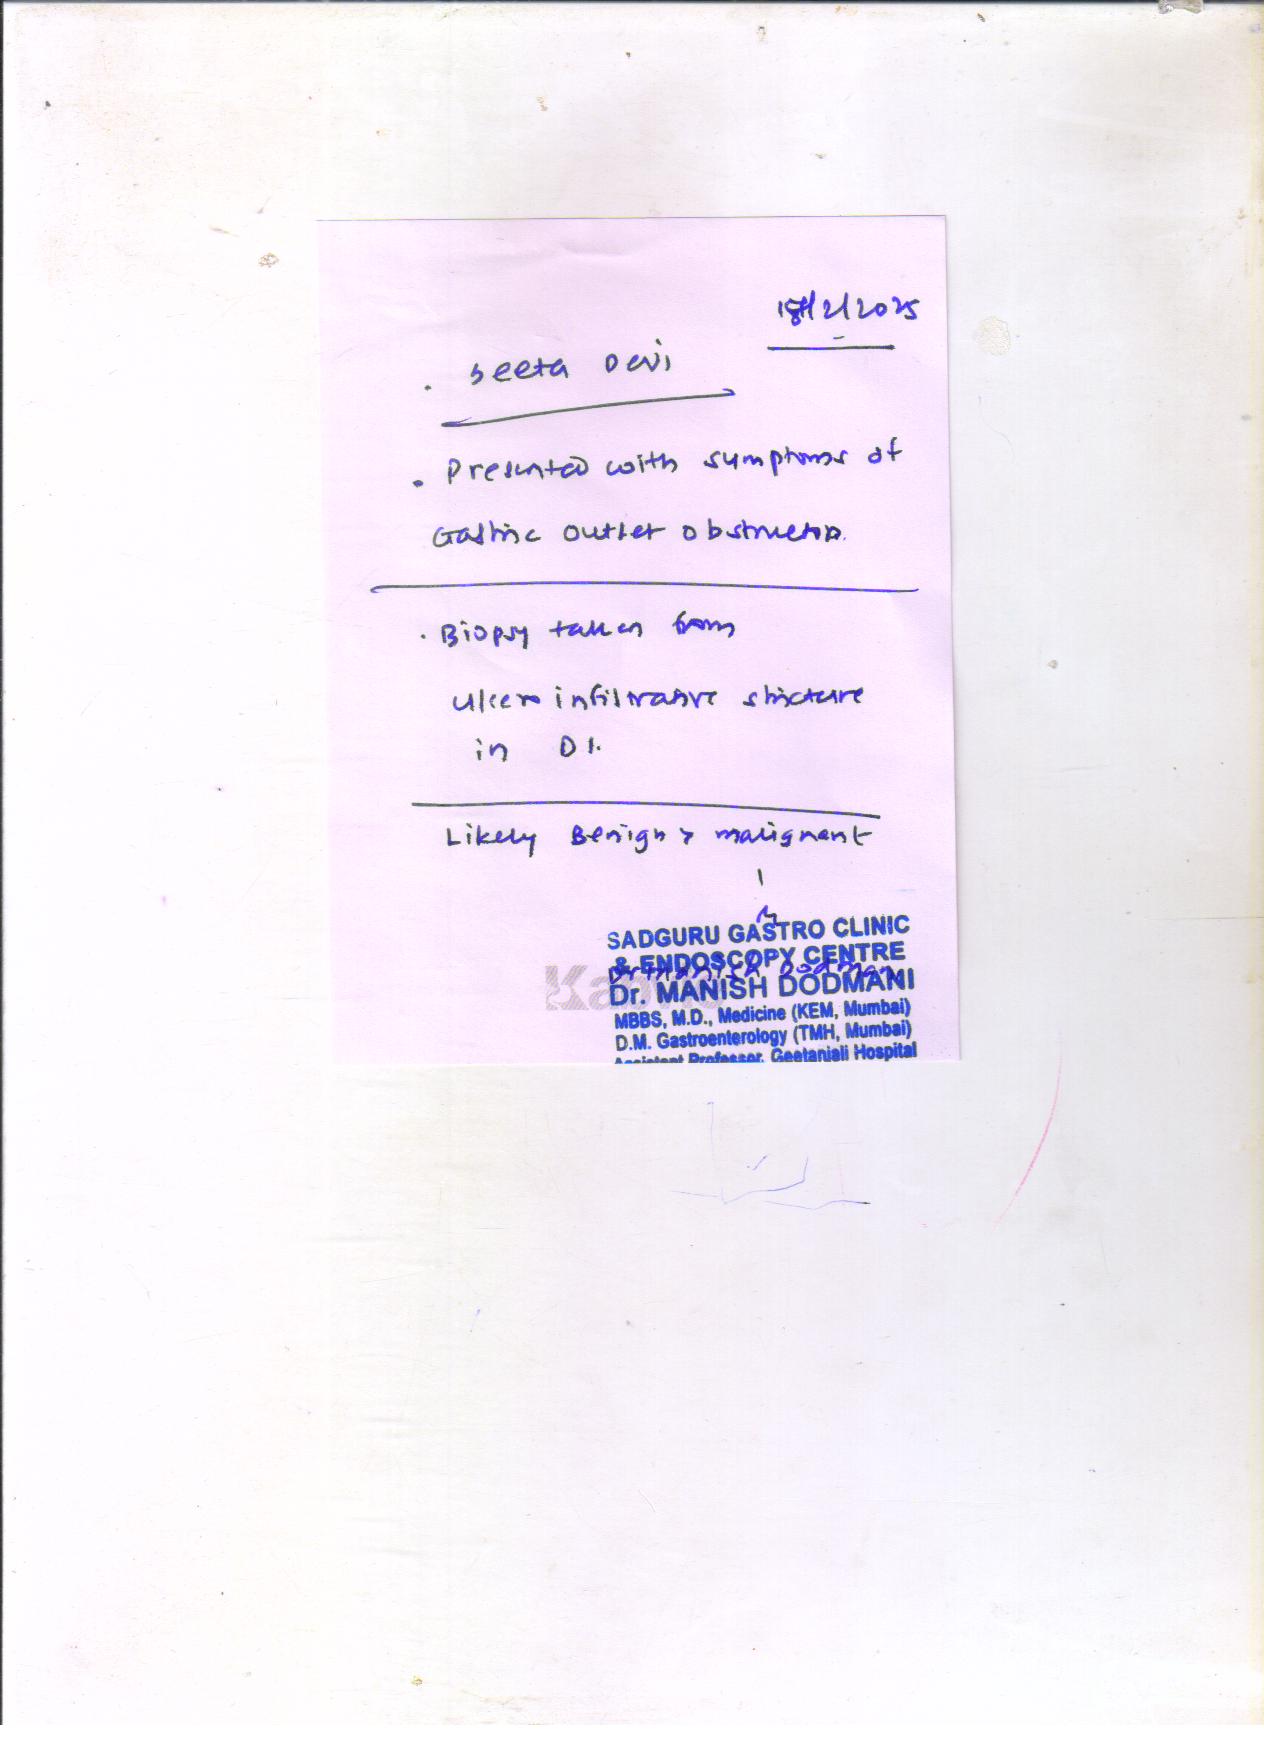 18/2/2025
. Seeta Devi
. Presented with symptoms of
Gastric outlet obstruction.
. Biopsy taken from
Ulcero infiltrative stricture
in D1.
Likely Benign > malignant
SADGURU GASTRO CLINIC
& ENDOSCOPY CENTRE
Dr Manish Dodmani
Dr. MANISH DODMANI
MBBS, M.D., Medicine (KEM, Mumbai)
D.M. Gastroenterology (TMH, Mumbai)
Assistant Professor, Geetanjali Hospital